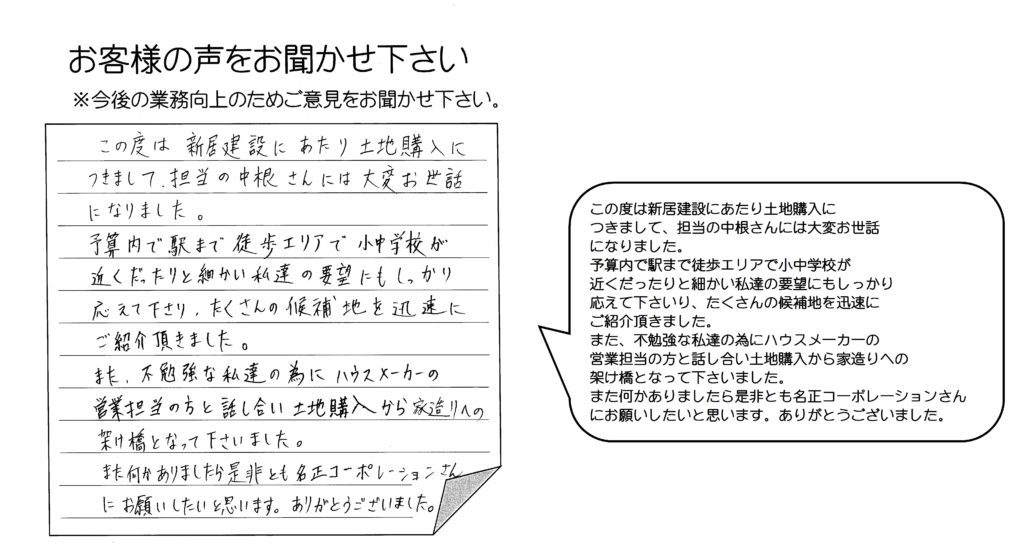 お客様の声をお聞かせ下さい
※今後の業務向上のためご意見をお聞かせ下さい。
この度は新居建設にあたり土地購入に
つきまして、担当の中根さんには大変お世話
になりました。
予算内で駅まで徒歩エリアで小中学校が
近くだったりと細かい私達の要望にもしっかり
応えて下さり、たくさんの候補地を迅速に
ご紹介頂きました。
また、不勉強な私達の為にハウスメーカーの
営業担当の方と話し合い土地購入から家造りへの
架け橋となって下さいました。
また何かありましたら是非とも名正コーポレーションさん
にお願いしたいと思います。ありがとうございました。
この度は新居建設にあたり土地購入に
つきまして、担当の中根さんには大変お世話
になりました。
予算内で駅まで徒歩エリアで小中学校が
近くだったりと細かい私達の要望にもしっかり
応えて下さいり、たくさんの候補地を迅速に
ご紹介頂きました。
また、不勉強な私達の為にハウスメーカーの
営業担当の方と話し合い土地購入から家造りへの
架け橋となって下さいました。
また何かありましたら是非とも名正コーポレーションさん
にお願いしたいと思います。ありがとうございました。